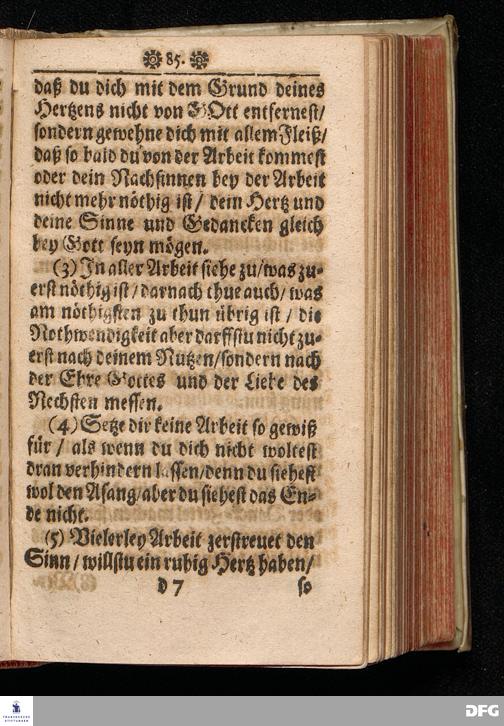 85.
daß du dich mit dem Grund deines
Hertzens nicht von GOtt entfernest/
sondern gewehne dich mit allem Fleiß/
daß so bald du von der Arbeit kommest
oder dein Nachsinnen bey der Arbeit
nicht mehr nöthig ist/ dein Hertz und
deine Sinne und Gedancken gleich
bey Gott seyn mögen.
(3) In aller Arbeit siehe zu/ was zu-
erst nöthig ist/ darnach thue auch/ was
am nöthigsten zu thun übrig ist/ die
Nothwendigkeit aber darffstu nicht zu-
erst nach deinem Nutzen/ sondern nach
der Ehre Gottes und der Liebe des
Nechsten messen.
(4) Setze dir keine Arbeit so gewiß
für/ als wenn du dich nicht woltest
dran verhindern lassen/ denn du siehest
wol den Afang/ aber du siehest das En-
de nicht.
(5) Vielerley Arbeit zerstreuet den
Sinn/ willstu ein ruhig Hertz haben/
D 7 so
FRANCKESCHE
STIFTUNGEN
DFG